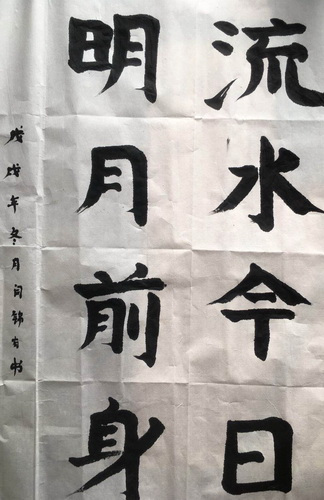 流水今日
明月前身
戊戌年冬月闫锦有书